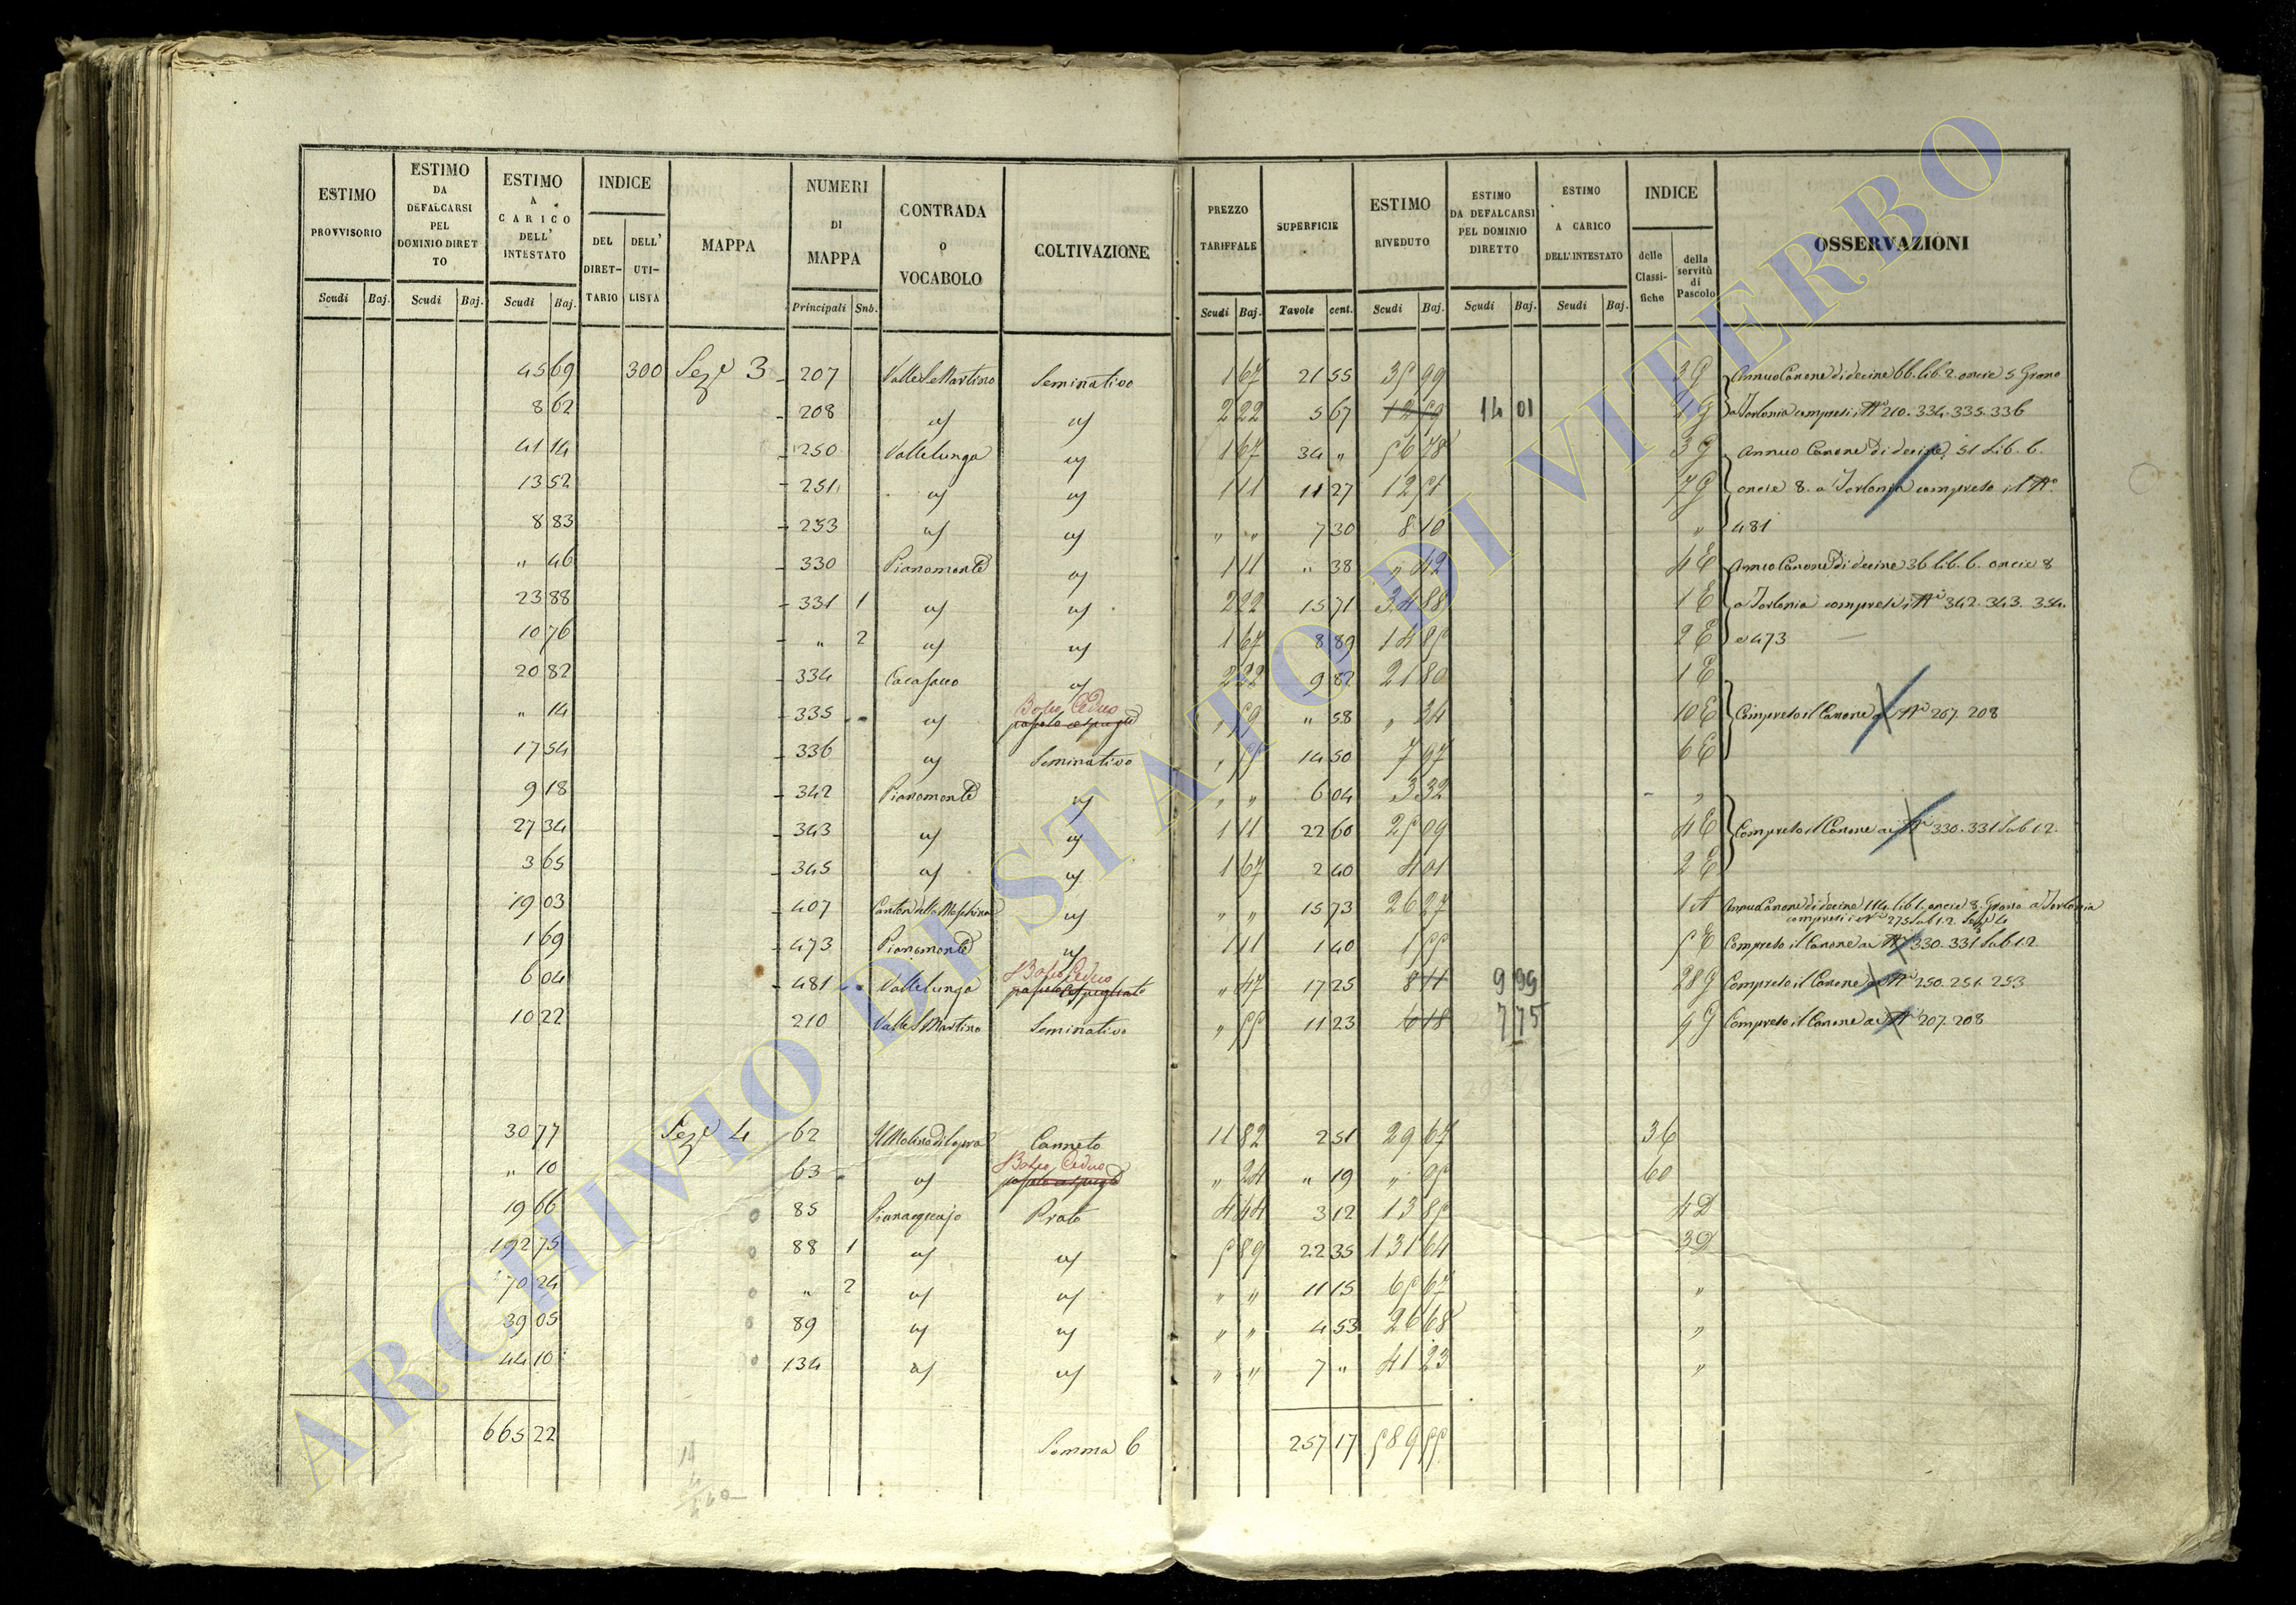 ESTIMO PROVVISORIO Scudi Baj.
ESTIMO DA DEFALCARSI PEL DOMINIO DIRETTO Scudi Baj.
ESTIMO A CARICO DELL' INTESTATO Scudi Baj.
INDICE DEL DIRET-TARIO DELL' UTI-LISTA
MAPPA
NUMERI DI MAPPA Principali Snb.
CONTRADA O VOCABOLO
COLTIVAZIONE
PREZZO TARIFFALE Scudi Baj.
SUPERFICIE Tavole cent.
ESTIMO RIVEDUTO Scudi Baj.
ESTIMO DA DEFALCARSI PEL DOMINIO DIRETTO Scudi Baj.
ESTIMO A CARICO DELL' INTESTATO Scudi Baj.
INDICE delle Classi-fiche della servitù di Pascolo
OSSERVAZIONI
45 69 300 Sez.e 3 207 Valle S. Martino Seminativo 1 67 21 55 35 99 3 G Annuo Canone di decine 66. lib. 2. oncie 5 Grano
8 62 208 " " 2 22 5 67 12 59 14 01 G a Torlonia compresi i N.i 210. 334. 335. 336
41 14 250 Vallelunga " 1 67 34 " 56 78 3 G Annuo Canone di decine 51 Lib. 6.
13 52 251 " " 1 11 11 27 12 51 7 G oncie 8. a Torlonia compreso il N.o
8 83 253 " " " " 7 30 8 10 " 481
" 46 330 Pianomonte " 1 11 " 38 " 42 4 E Annuo Canone di decine 36 lib. 6. oncie 8
23 88 331 1 " " 2 22 15 71 34 88 1 E a Torlonia compresi i N.i 342. 343. 354.
10 76 " 2 " " 1 67 8 89 14 85 2 E e 473
20 82 334 Cacasacco " 2 22 9 82 21 80 1 E
" 14 335 " Bosco Ceduo pascolo cespugl.o " 59 " 58 " 34 10 E Compreso il Canone ai N.i 207. 208
17 54 336 " Seminativo " 55 14 50 7 97 6 E
9 18 342 Pianomonte " " " 6 04 3 32 "
27 34 343 " " 1 11 22 60 25 09 4 E Compreso il Canone ai N.i 330. 331 Sub 1.2.
3 65 345 " " 1 67 2 40 4 01 2 E
19 03 407 " " " 15 73 26 27 1 A Annuo Canone di decine 114. lib. 1. oncie 8. Grano a Torlonia
compresi i N.i 275 Sub 1.2. Sez.e 4
1 69 473 Pianomonte " 1 11 1 40 1 55 5 E Compreso il Canone ai N.i 330. 331 Sub 1.2
6 04 481 Vallelunga Bosco Ceduo pascolo Cespugliato " 47 17 25 8 11 9 99 28 G Compreso il Canone ai N.i 250. 251. 253
10 22 210 Valle S. Martino Seminativo " 55 11 23 6 18 7 75 G Compreso il Canone ai N.i 207. 208
30 77 Sez.e 4 62 Canneto 11 82 2 51 29 67 36
" 10 63 " Bosco Ceduo pascolo cespugl.o " 24 " 19 " 05 60
19 66 85 Prato 4 44 3 12 13 85 4 D
192 75 88 1 " " 5 89 22 35 131 64 3 D
70 24 " 2 " " " " 11 15 65 67 "
39 05 89 " " " " 4 53 26 68 "
44 10 134 " " " " 7 " 41 23 "
665 22 Somma 6 257 17 589 55
ARCHIVIO DI STATO DI VITERBO